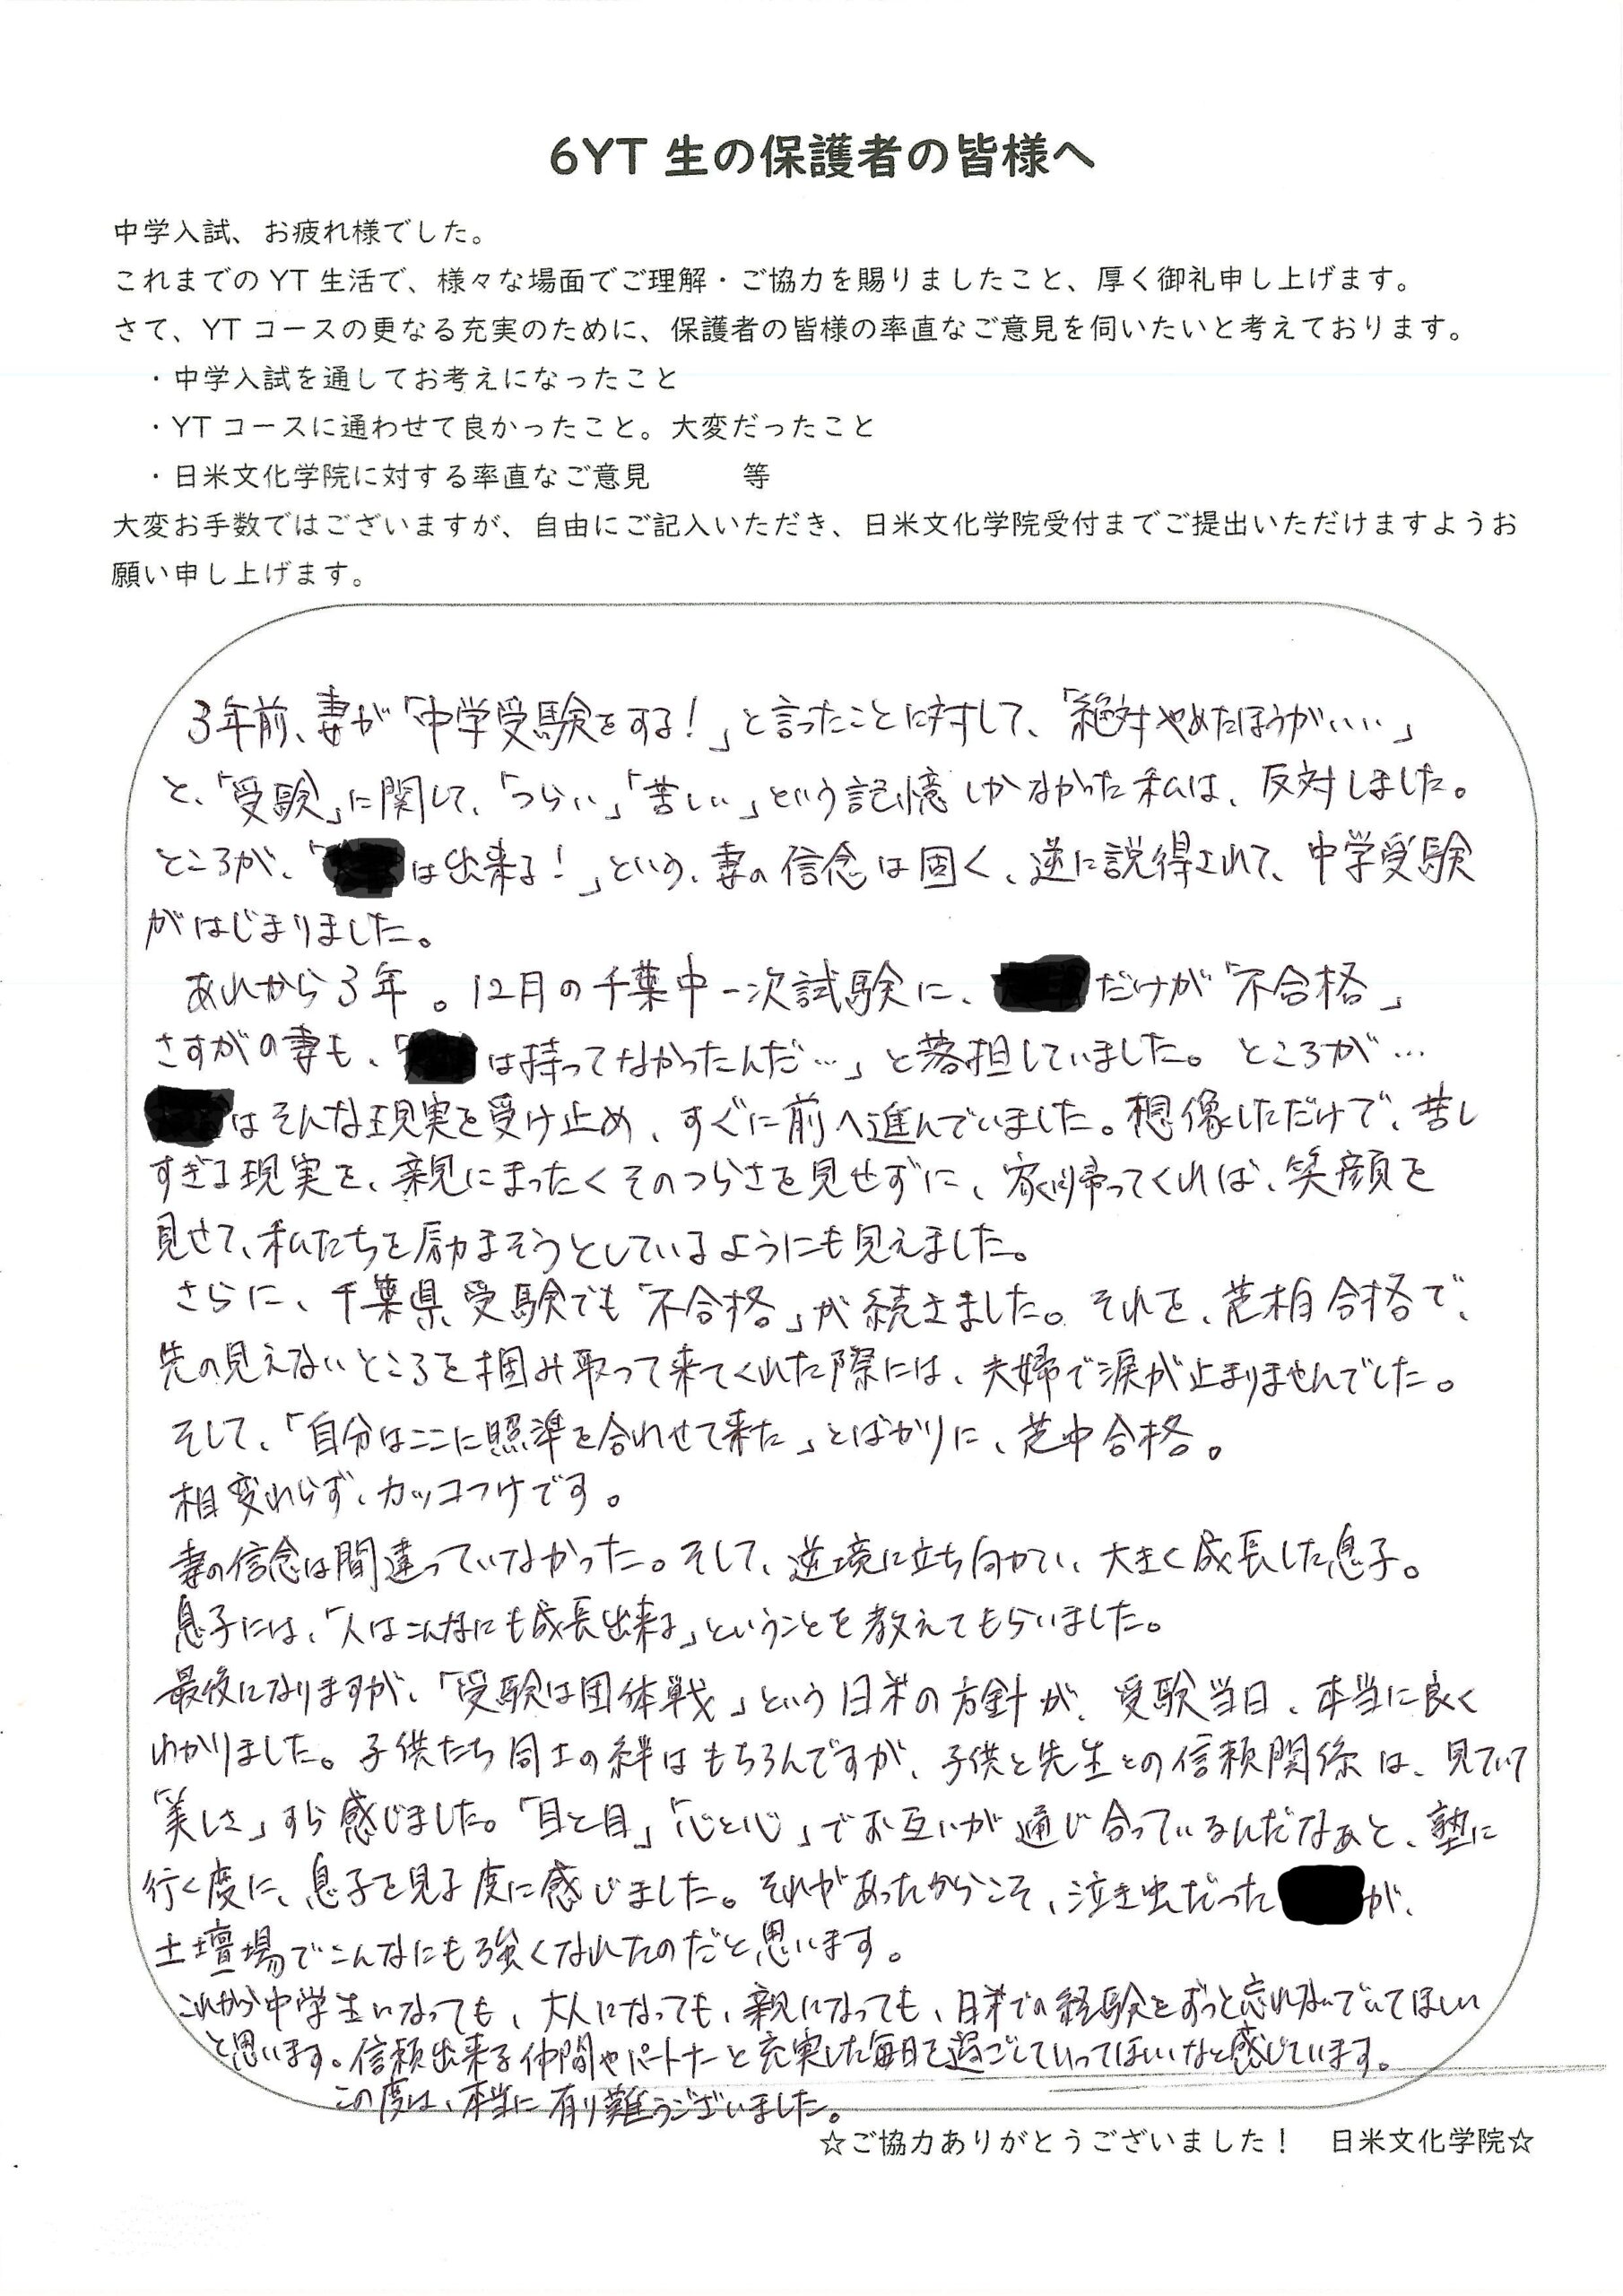 6YT 生の保護者の皆様へ
中学入試、お疲れ様でした。
これまでの YT 生活で、様々な場面でご理解・ご協力を賜りましたこと、厚く御礼申し上げます。
さて、YT コースの更なる充実のために、保護者の皆様の率直なご意見を伺いたいと考えております。
・中学入試を通してお考えになったこと
・YT コースに通わせて良かったこと。大変だったこと
・日米文化学院に対する率直なご意見　　　等
大変お手数ではございますが、自由にご記入いただき、日米文化学院受付までご提出いただけますようお
願い申し上げます。
3年前、妻が「中学受験をする！」と言ったことに対して、「絶対やめたほうがいい」
と、「受験」に関して、「つらい」「苦しい」という記憶しかなかった私は、反対しました。
ところが、「は出来る！」という、妻の信念は固く、逆に説得されて、中学受験
がはじまりました。
あれから3年。12月の千葉中一次試験に、だけが「不合格」
さすがの妻も、「は持ってなかったんだ…」と落担していました。ところが…
はそんな現実を受け止め、すぐに前へ進んでいました。想像しただけで、苦し
すぎる現実を、親にまったくそのつらさを見せずに、家に帰ってくれば、笑顔を
見せて、私たちを励まそうとしているようにも見えました。
さらに、千葉県受験でも「不合格」が続きました。それを、芝柏合格で、
先の見えないところを掴み取って来てくれた際には、夫婦で涙が止まりませんでした。
そして、「自分はここに照準を合わせて来た」とばかりに、芝中合格。
相変わらず、カッコつけです。
妻の信念は間違っていなかった。そして、逆境に立ち向かい、大きく成長した息子。
息子には、「人はこんなにも成長出来る」ということを教えてもらいました。
最後になりますが、「受験は団体戦」という日米の方針が、受験当日、本当に良く
わかりました。子供たち同士の絆はもちろんですが、子供と先生との信頼関係は、見ていて
「美しさ」すら感じました。「目と目」「心と心」でお互いが通じ合っているんだなぁと、塾に
行く度に、息子を見る度に感じました。それがあったからこそ、泣き虫だったが、
土壇場でこんなにも強くなれたのだと思います。
これから中学生になっても、大人になっても、親になっても、日米での経験をずっと忘れないでいてほしい
と思います。信頼出来る仲間やパートナーと充実した毎日を過ごしていってほしいなと感じています。
この度は、本当に有り難うございました。
☆ご協力ありがとうございました！　日米文化学院☆